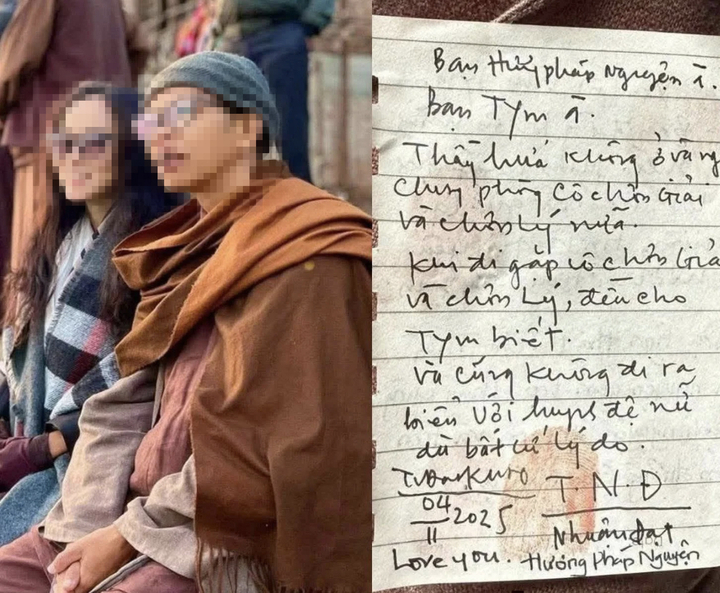 Bạn Hướng pháp Nguyện ạ.
Bạn Tym ạ.
Thầy hứa không ở và ng
chung phòng cô chơn Giải
và chơn Lý nữa.
khi đi gặp cô chơn Giả
và chơn Lý, đều cho
Tym biết.
và cũng không đi ra
biển với đệ nữ
dù bất cứ lý do.
04
11 2025
T.N.Đ
Nhuận đạt
Love you. Hướng Pháp Nguyện